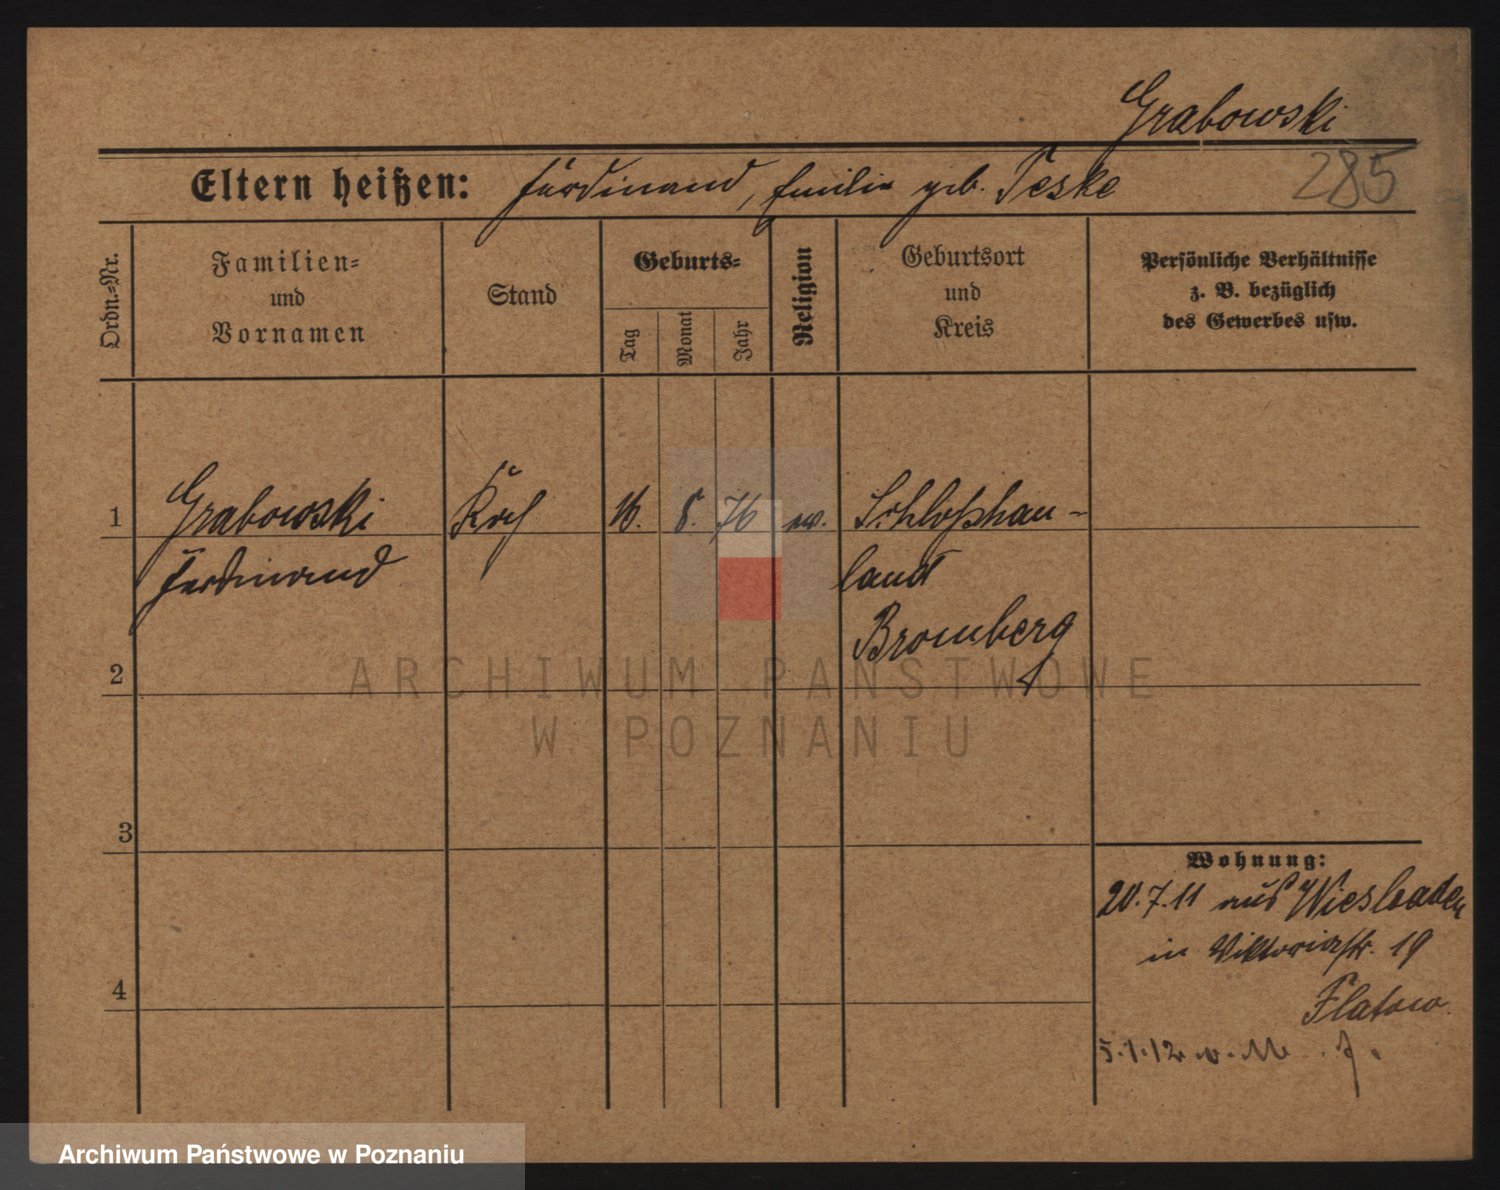 Grabowski
285
Eltern heißen: Ferdinand, Emilie geb. Teske
Ordn.=Nr.
Familien=
und
Vornamen
Stand
Geburts=
Tag
Monat
Jahr
Religion
Geburtsort
und
Kreis
Persönliche Verhältnisse
z. B. bezüglich
des Gewerbes usw.
1 Grabowski Koch 16. 8. 76 ev. Schloßhau-
Ferdinand land
Bromberg
2
ARCHIWUM PAŃSTWOWE
W POZNANIU
3
Wohnung:
20.7.11 aus Wiesbaden
in Viktoriastr. 19
4
Flatow.
5.1.12
Archiwum Państwowe w Poznaniu